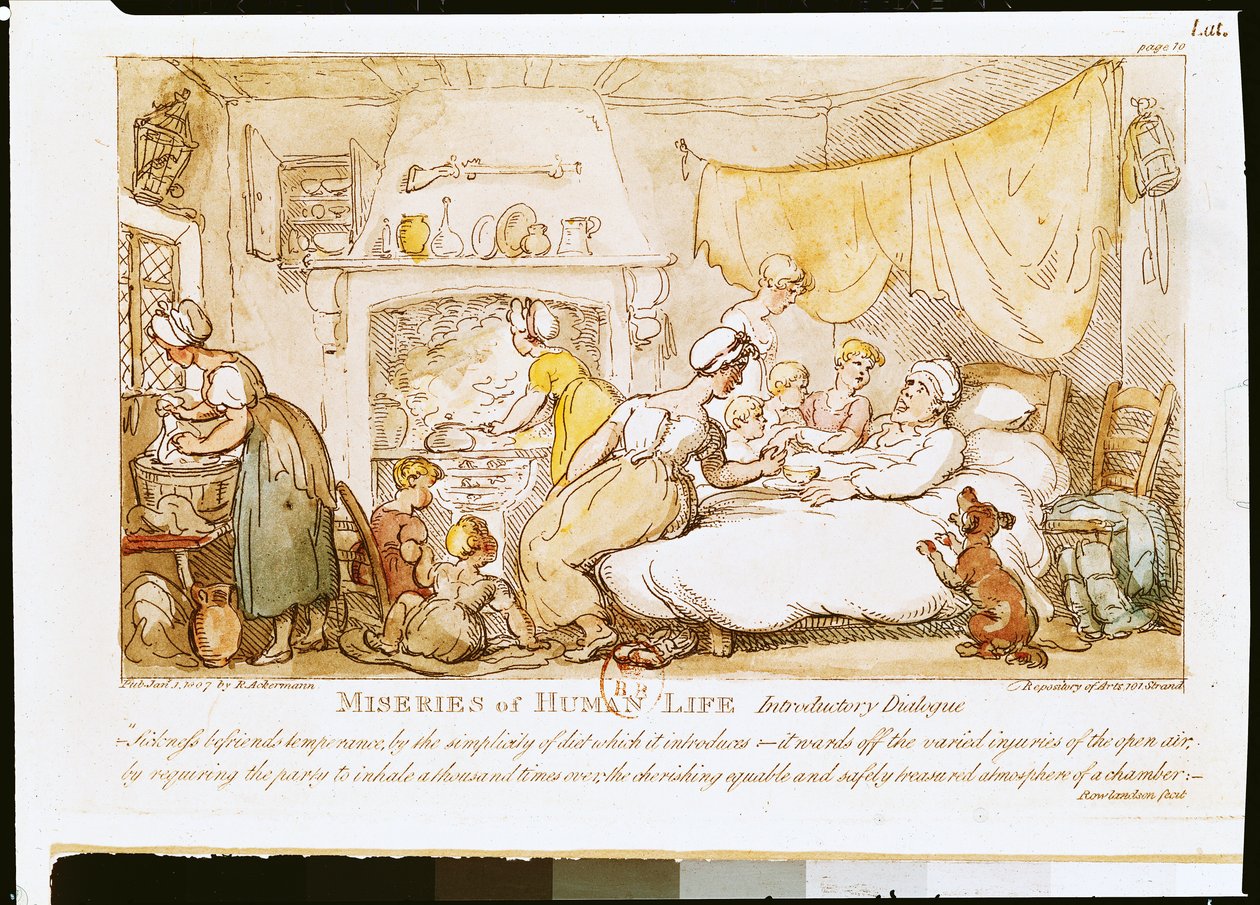 Lut.
page 10
Pub Jan. 1, 1807 by R. Ackermann
Repository of Arts, 101 Strand
MISERIES of HUMAN LIFE Introductory Dialogue
"–Sickneſs befriends temperance, by the simplicity of diet which it introduces :– it wards off the varied injuries of the open air,
by requiring the party to inhale a thousand times over, the cherishing equable and safely treasured atmosphere of a chamber :–
Rowlandson fecit
B.R